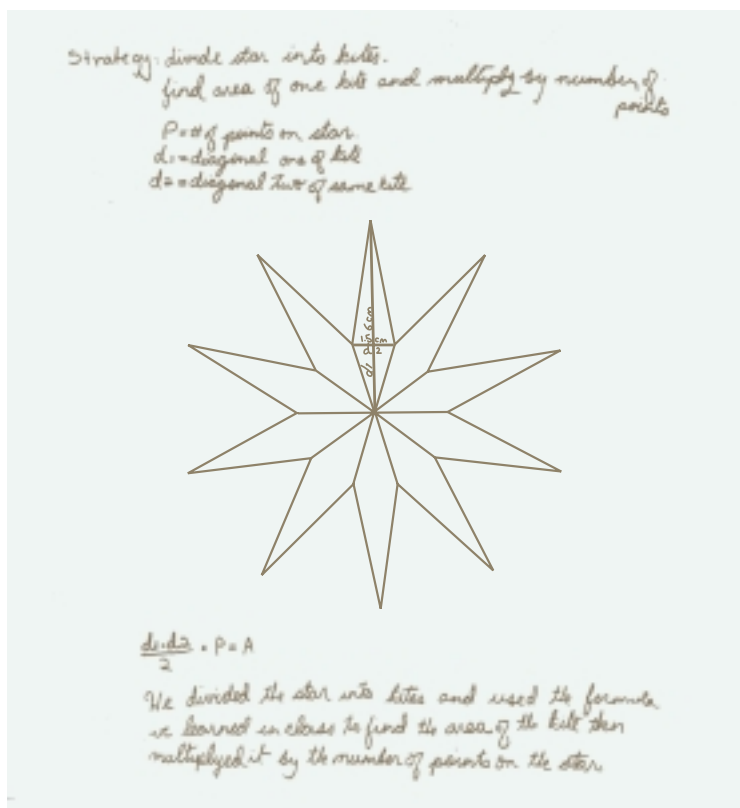 Strategy: divide star into kites.
find area of one kite and multiply by number of
points
P = # of points on star.
d1 = diagonal one of kite
d2 = diagonal two of same kite
6 cm
1.5 cm
d2
d1
d1·d2/2 · P = A
We divided the star into kites and used the formula
we learned in class to find the area of the kite then
multiplyed it by the number of points on the star